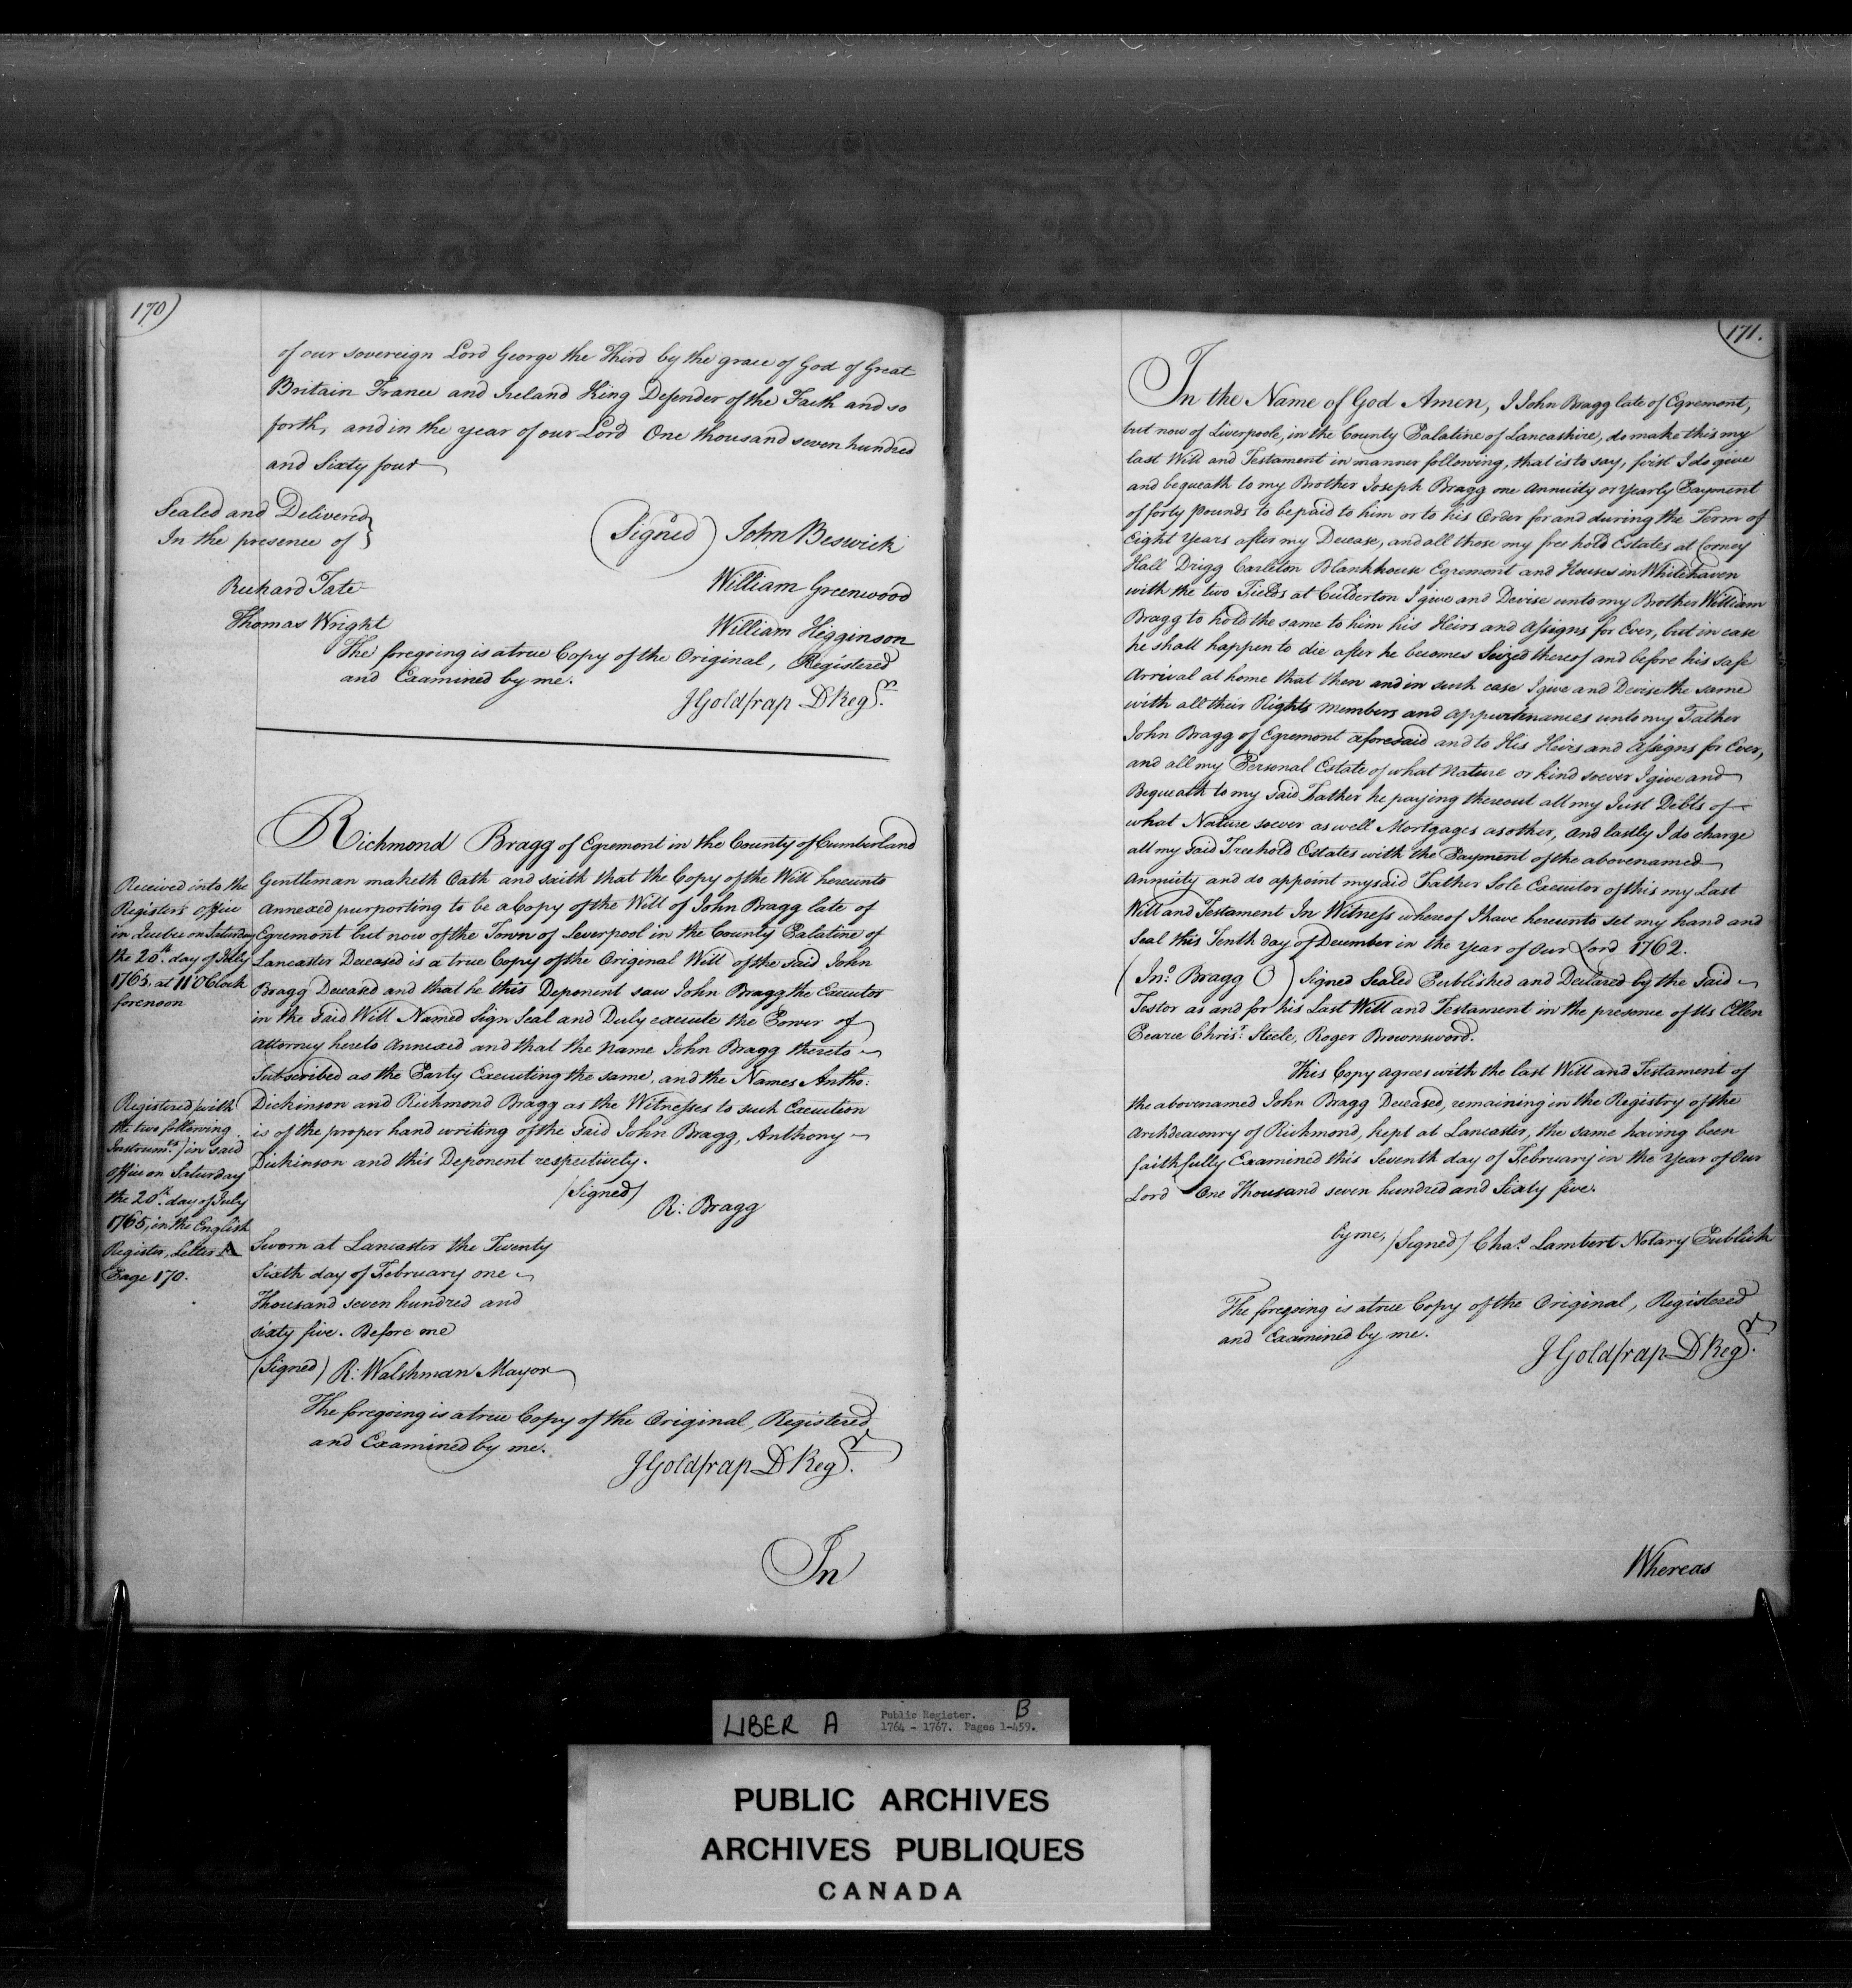 170)
of our sovereign Lord George the Third by the grace of God of Great
Britain France and Ireland King Defender of the Faith and so
forth, and in the year of our Lord One thousand seven hundred
and Sixty four
Sealed and Delivered
In the presence of
(Signed) John Beswick
Richard Tate
William Greenwood
Thomas Wright
William Higginson
The foregoing is a true Copy of the Original, Registered
and Examined by me.
JGoldfrap D Regr.
Richmond Bragg of Egremont in the County of Cumberland
Gentleman maketh Oath and saith that the Copy of the Will hereunto
annexed purporting to be a Copy of the Will of John Bragg late of
Egremont but now of the Town of Leverpool in the County Palatine of
Lancaster Deceased is a true Copy of the Original Will of the said John
Bragg Deceased and that he this Deponent saw John Bragg the Executor
in the said Will Named Sign Seal and Duly execute the Power of
attorney hereto Annexed and that the name John Bragg thereto
Subscribed as the Party Executing the same, and the Names Antho:
Dickinson and Richmond Bragg as the Witnesses to such Execution
is of the proper hand writing of the said John Bragg, Anthony
Dickinson and this Deponent respectively.
(Signed)
R: Bragg
Received into the
Register's office
in Quebec on Saturday
the 20th. day of July
1765. at 11 O'Clock
forenoon
Registered (with
the two following
Instrumts.) in said
office on Saturday
the 20th. day of July
1765, in the English
Register, Letter A
Page 170.
Sworn at Lancaster the Twenty
Sixth day of February one
Thousand seven hundred and
sixty five. Before me
(Signed) R: Walshman Mayor
The foregoing is a true Copy of the Original, Registered
and Examined by me.
JGoldfrap D Regr.
In
171.
In the Name of God Amen, I John Bragg late of Egremont,
but now of Liverpoole, in the County Palatine of Lancashire, do make this my
last Will and Testament in manner following, that is to say, first I do give
and bequeath to my Brother Joseph Bragg one annuity or Yearly Payment
of forty pounds to be paid to him or to his Order for and during the Term of
Eight Years after my Decease, and all those my free hold Estates at Corney
Hall Drigg Carleton Blankhouse Egremont and Houses in Whitehaven
with the two Fields at Culderton I give and Devise unto my Brother William
Bragg to hold the same to him his Heirs and Assigns for Ever, but in case
he shall happen to die after he becomes Seized thereof and before his safe
Arrival at home that then and in such case I give and Devise the same
with all their Rights members and appurtenances unto my Father
John Bragg of Egremont aforesaid and to His Heirs and Assigns for Ever,
and all my Personal Estate of what Nature or kind soever I give and
Bequeath to my said Father he paying thereout all my Just Debts of
what Nature soever as well Mortgages as other, and lastly I do charge
all my said Freehold Estates with the Payment of the abovenamed
Annuity and do appoint my said Father Sole Executor of this my Last
Will and Testament In Witness whereof I have hereunto set my hand and
Seal this Tenth day of December in the Year of Our Lord 1762.
(Jno. Bragg O) Signed Sealed Published and Declared by the said
Testor as and for his Last Will and Testament in the presence of Us Ellen
Pearce Chrisr. Steele, Roger Brownsword.
This Copy agrees with the last Will and Testament of
the abovenamed John Bragg Deceased, remaining in the Registry of the
Archdeaconry of Richmond, kept at Lancaster, the same having been
faithfully Examined this Seventh day of February in the Year of Our
Lord One Thousand seven hundred and Sixty five.
by me, (Signed) Chas. Lambert Notary Publick
The foregoing is a true Copy of the Original, Registered
and Examined by me.
JGoldfrap D Regr.
Whereas
LIBER A
Public Register. B
1764 - 1767. Pages 1-459.
PUBLIC ARCHIVES
ARCHIVES PUBLIQUES
CANADA